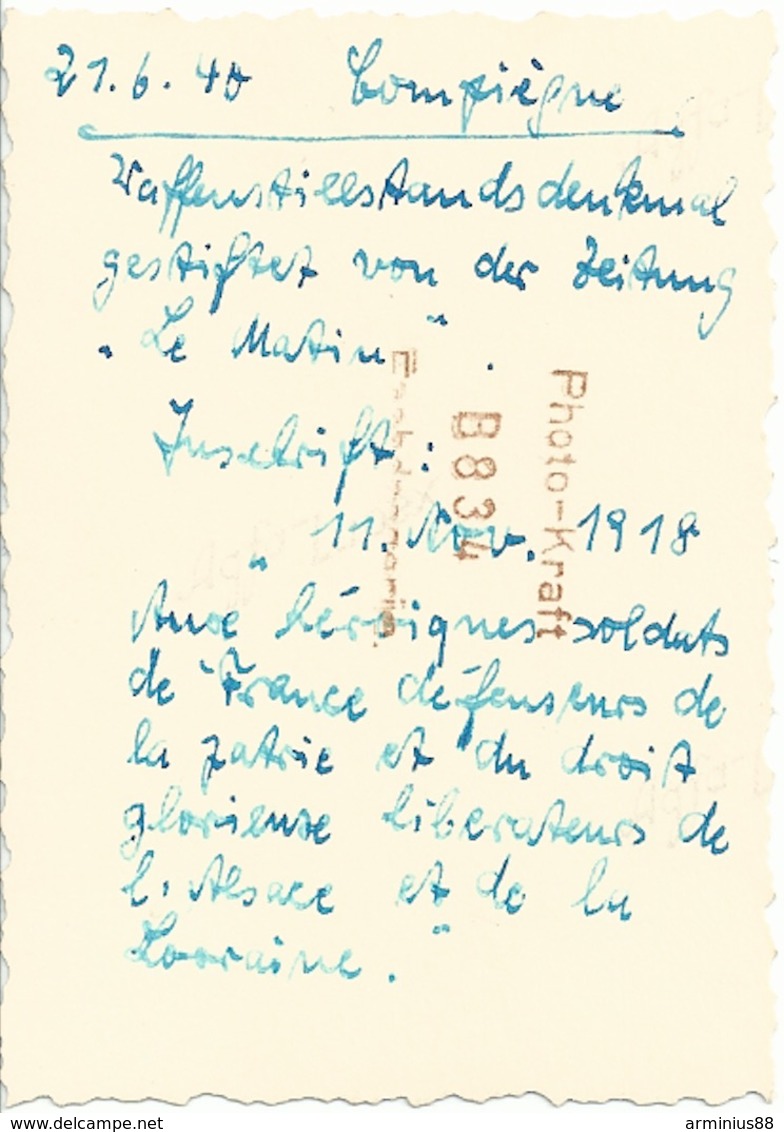 21.6.40 Compiègne
Waffenstillstandsdenkmal
gestiftet von der Zeitung
„Le Matin“.
Inschrift:
„11. Nov. 1918
Aux héroiques soldats
de France défenseurs de
la patrie et du droit
glorieuxe liberateurs de
l'Alsace et de la
Lorraine.“
Photo-Kraft
B834
www.delcampe.net
arminius88